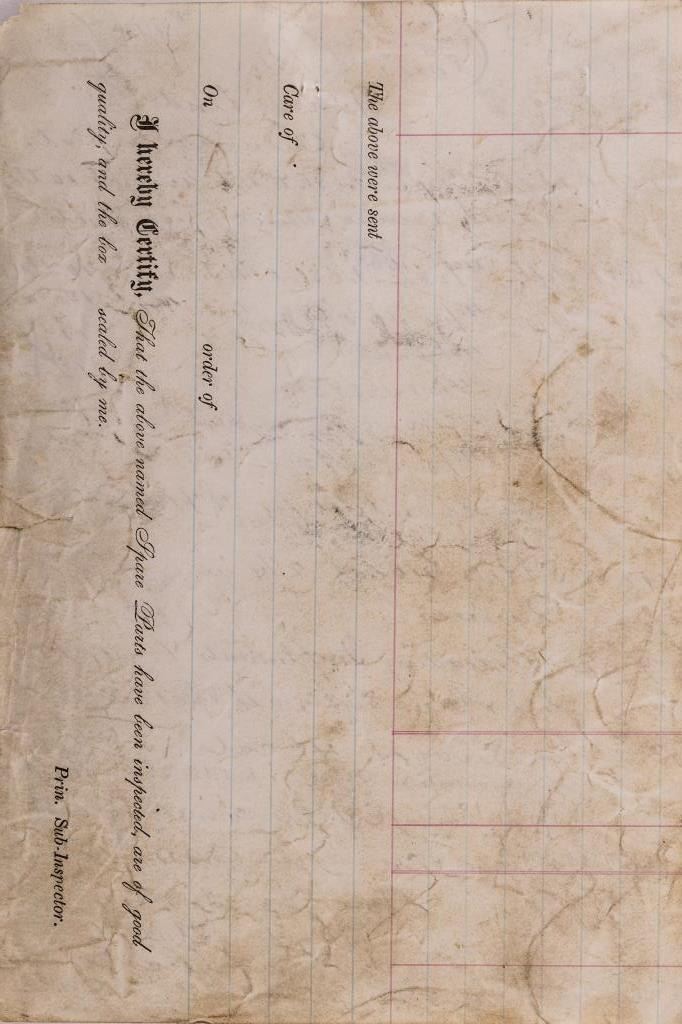 The above were sent
Care of
On order of
I hereby Certify, That the above named Spare Parts have been inspected, are of good
quality, and the box sealed by me.
Prin. Sub-Inspector.